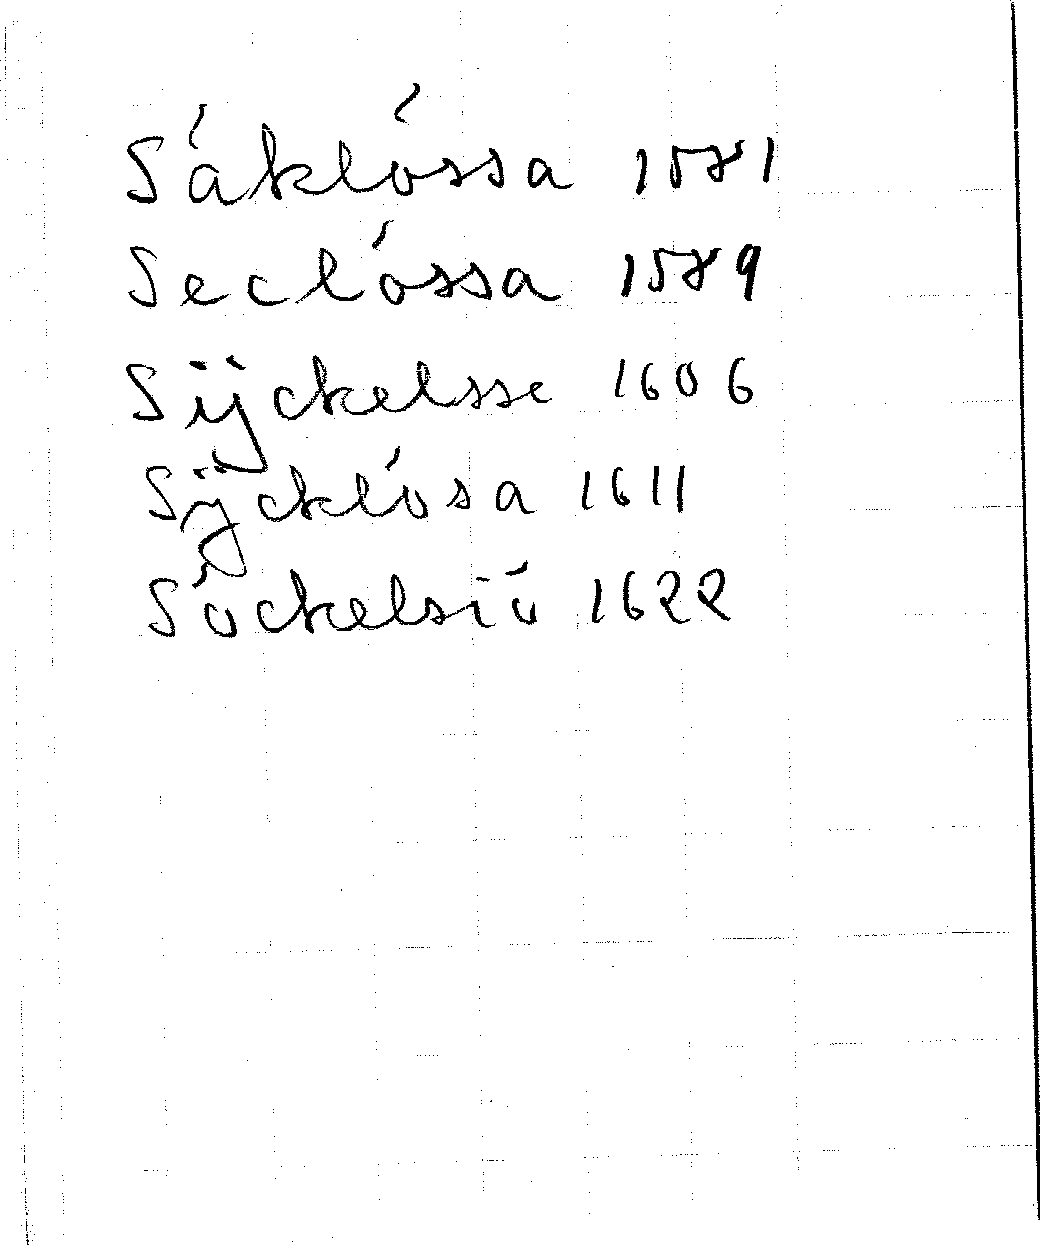 Sáklóssa 1581
Seclóssa 1589
Sijckelsse 1606
Sÿcklósa 1611
Sóckelsió 1622